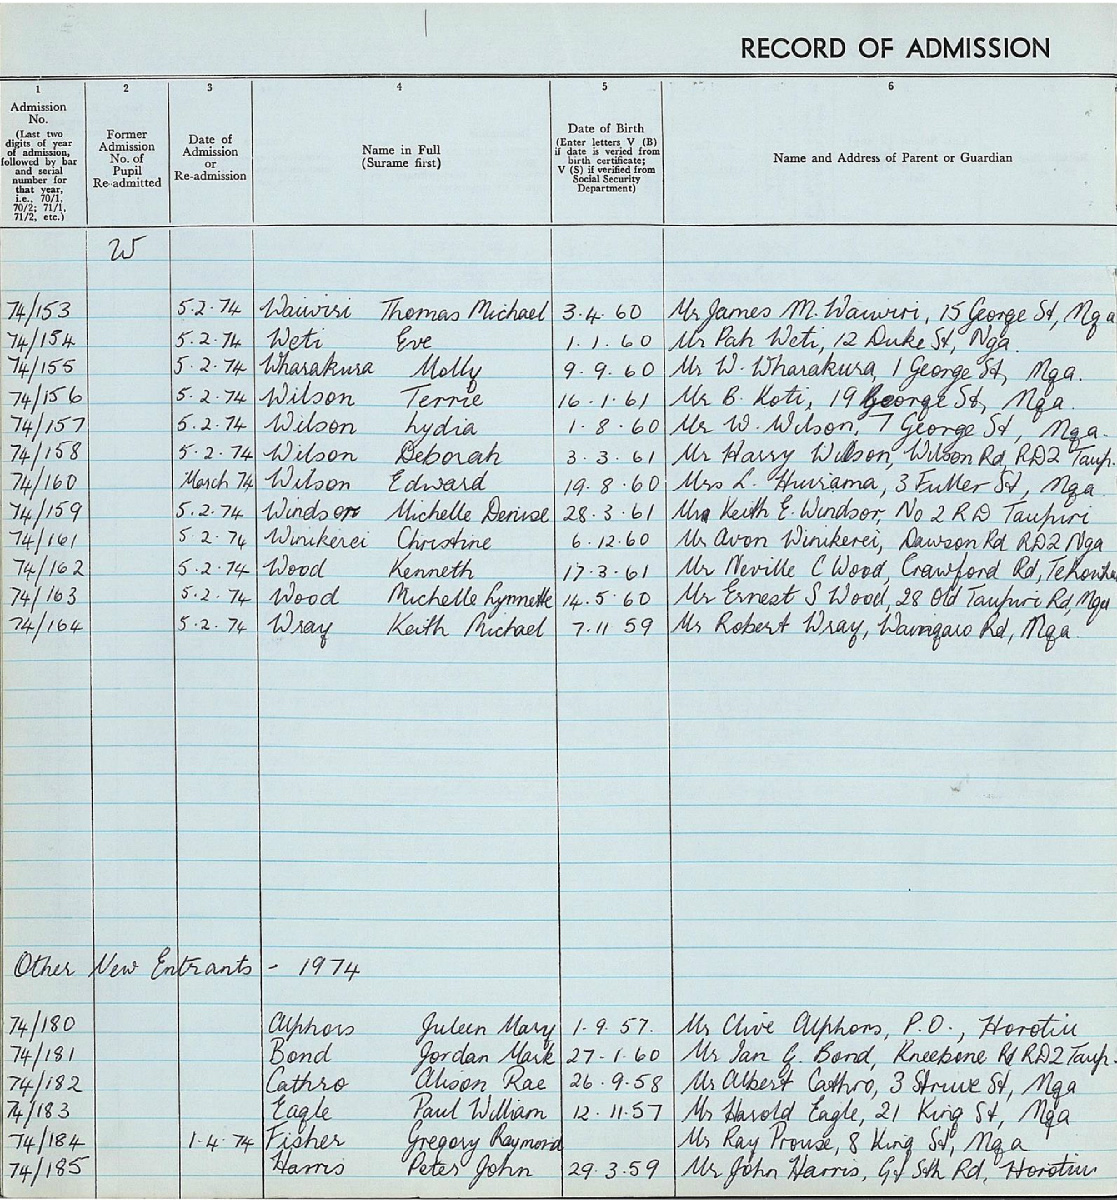 RECORD OF ADMISSION
1 2 3 4 5 6
Admission No. (Last two digits of year of admission, followed by bar and serial number for that year, i.e., 70/1, 70/2; 71/1, 71/2, etc.)
Former Admission No. of Pupil Re-admitted
Date of Admission or Re-admission
Name in Full (Surame first)
Date of Birth (Enter letters V (B) if date is veried from birth certificate; V (S) if verified from Social Security Department)
Name and Address of Parent or Guardian
W
74/153 5.2.74 Waiwiri Thomas Michael 3.4.60 Mr James M. Waiwiri, 15 George St, Nga
74/154 5.2.74 Weti Eve 1.1.60 Mr Pah Weti, 12 Duke St, Nga.
74/155 5.2.74 Wharakura Molly 9.9.60 Mr W. Wharakura, 1 George St, Nga.
74/156 5.2.74 Wilson Terrie 16.1.61 Mr B. Koti, 19 George St, Nga.
74/157 5.2.74 Wilson Lydia 1.8.60 Mr W. Wilson, 7 George St, Nga.
74/158 5.2.74 Wilson Deborah 3.3.61 Mr Harry Wilson, Wilson Rd, RD2 Taup.
74/160 March 74 Wilson Edward 19.8.60 Mrs L. Huirama, 3 Fuller St, Nga
74/159 5.2.74 Windsor Michelle Denise 28.3.61 Keith E. Windsor, No 2 RD Taupiri
74/161 5.2.74 Winikerei Christine 6.12.60 Mr Avon Winikerei, Dawson Rd RD2 Nga
74/162 5.2.74 Wood Kenneth 17.3.61 Mr Neville C Wood, Crawford Rd,
74/163 5.2.74 Wood Michelle Lynnette 14.5.60 Mr Ernest S Wood, 28 Old Taupiri Rd, Nga
74/164 5.2.74 Wray Keith Michael 7.11.59 Mr Robert Wray, Rd, Nga.
Other New Entrants - 1974
74/180 Alphors Juleen Mary 1.9.57. Mr Clive Alphors, P.O., Horotiu
74/181 Bond Jordan Mark 27.1.60 Mr Ian G. Bond, Kneebone Rd RD2 Taup.
74/182 Cathro Alison Rae 26.9.58 Mr Albert Cathro, 3 St, Nga
74/183 Eagle Paul William 12.11.57 Mr Harold Eagle, 21 King St, Nga
74/184 1.4.74 Fisher Gregory Raymond Mr Ray Prouse, 8 King St, Nga
74/185 Harris Peter John 29.3.59 Mr John Harris, Gt Sth Rd, Horotiu